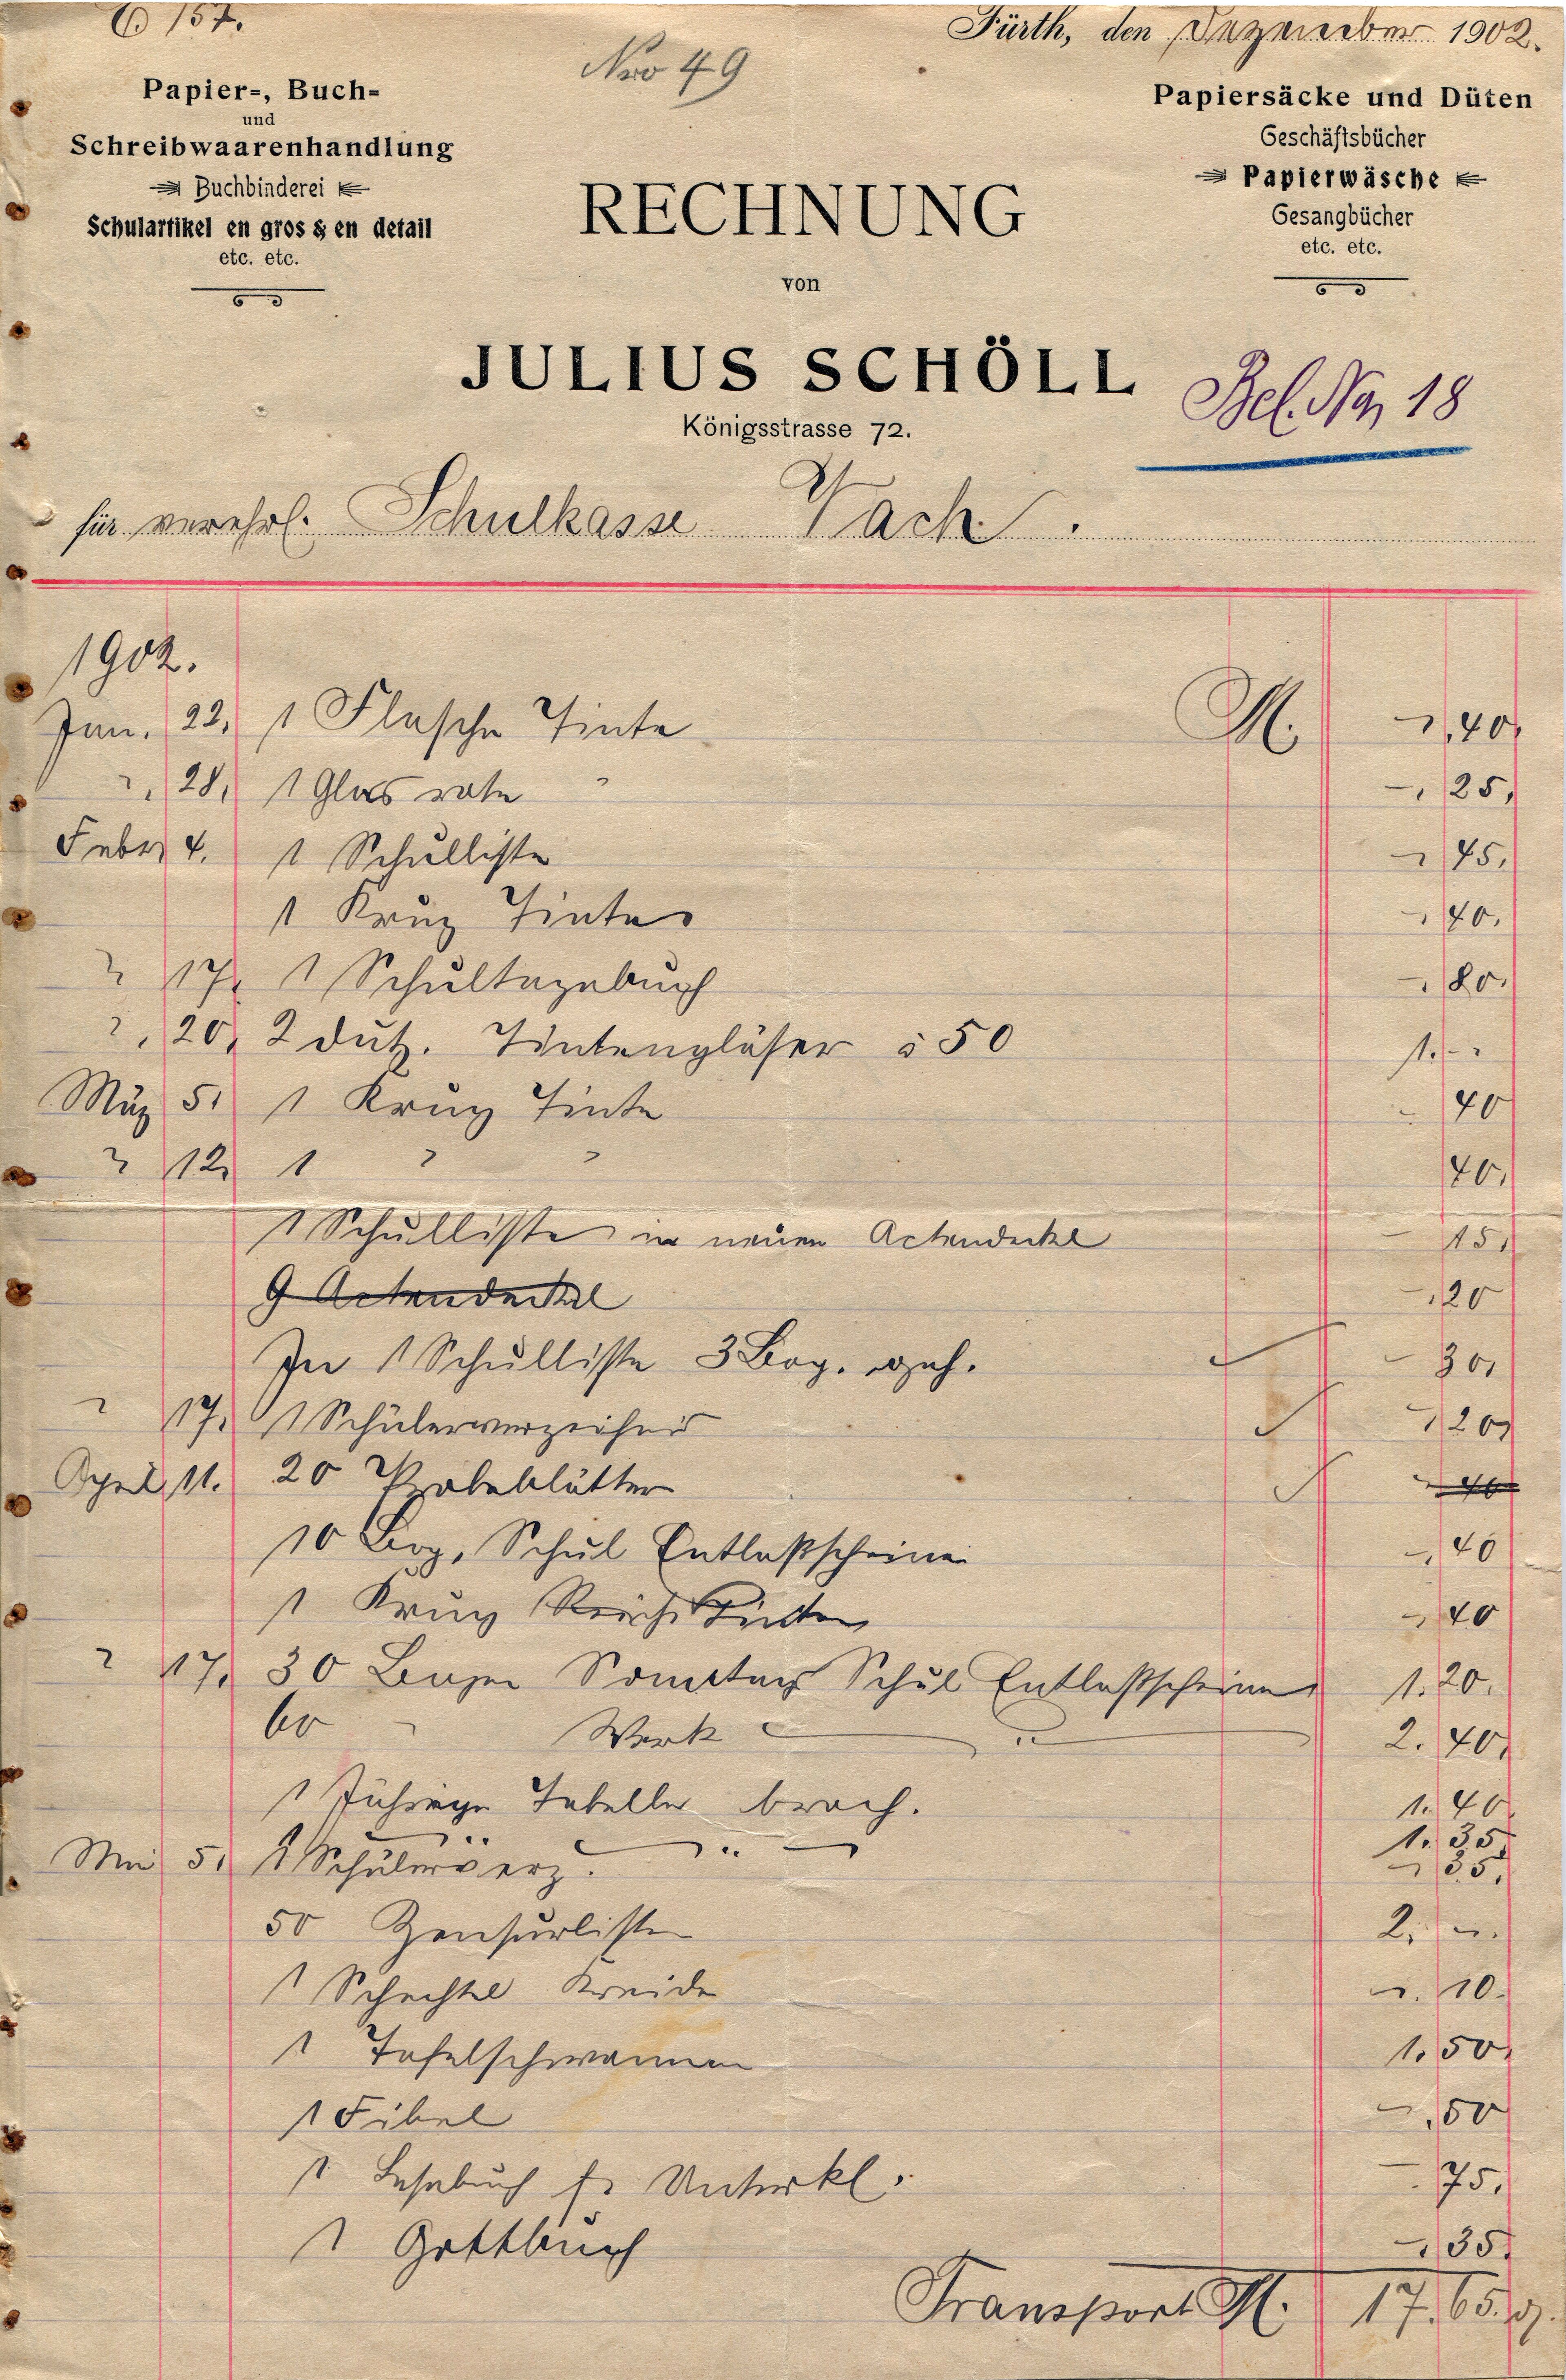 157.
Nro 49
Fürth, den Dezember 1902.
Papier-, Buch-
und
Schreibwaarenhandlung
Buchbinderei
Schulartikel en gros & en detail
etc. etc.
Papiersäcke und Düten
Geschäftsbücher
Papierwäsche
Gesangbücher
etc. etc.
RECHNUNG
von
JULIUS SCHÖLL
Königsstrasse 72.
Bel. No 18
für verehrl. Schulkasse Vach.
1902.
Jan. 22. 1 Flasche Tinte M. -,40
" 28, 1 Glas rote " -,25,
Febr. 4. 1 Schulliste -,45,
1 Krug Tinte -,40,
" 17. 1 Schultagebuch -,80.
" 20, 2 dutz. Tintengläser à 50 1.-
März 5. 1 Krug Tinte -40
" 12, 1 " " 40,
1 Schulliste in neuen Actendeckel -15,
9 Actendeckel -,20
In 1 Schulliste 3 Bog. geh. - 30,
" 17. 1 Schülerverzeichnis -,20
April 11. 20 Probeblätter
10 Bog. Schul Entlaßscheine -,40
1 Krug Tinte -,40
" 17, 30 Bogen Sonntags Schul Entlaßscheine 1.20.
60 " Werk " 2.40,
1 Jährige Tabelle broch. 1.40
1.35
Mai 5. 1 Schülerverz. -,35,
50 Zensurliste 2,-.
1 Schachtel Kreide -.10.
1 Tafelschwamm 1.50,
1 Fibel -,50
1 Lesebuch f. Unterkl. -75,
1 -,35,
Transport M. 17,65.